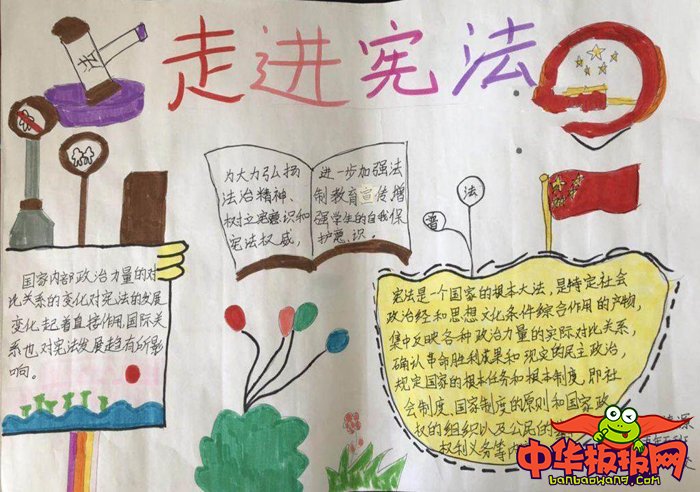 走进宪法
法
为大力弘扬
法治精神、
树立宪法意识和
宪法权威，
进一步加强法
制教育宣传增
强学生的自我保
护意识。
普
法
国家内部政治力量的对
比关系的变化对宪法的发展
变化起着直接作用国际关
系也对宪法发展趋有所影
响。
宪法是一个国家的根本大法，是特定社会
政治经和思想文化条件综合作用的产物，
集中反映各种政治力量的实际对比关系，
确认革命胜利成果和现实的民主政治，
规定国家的根本任务和根本制度，即社
会制度、国家制度的原则和国家政
权的组织以及公民的
权利义务等内
中华板报网
banbaowang.com